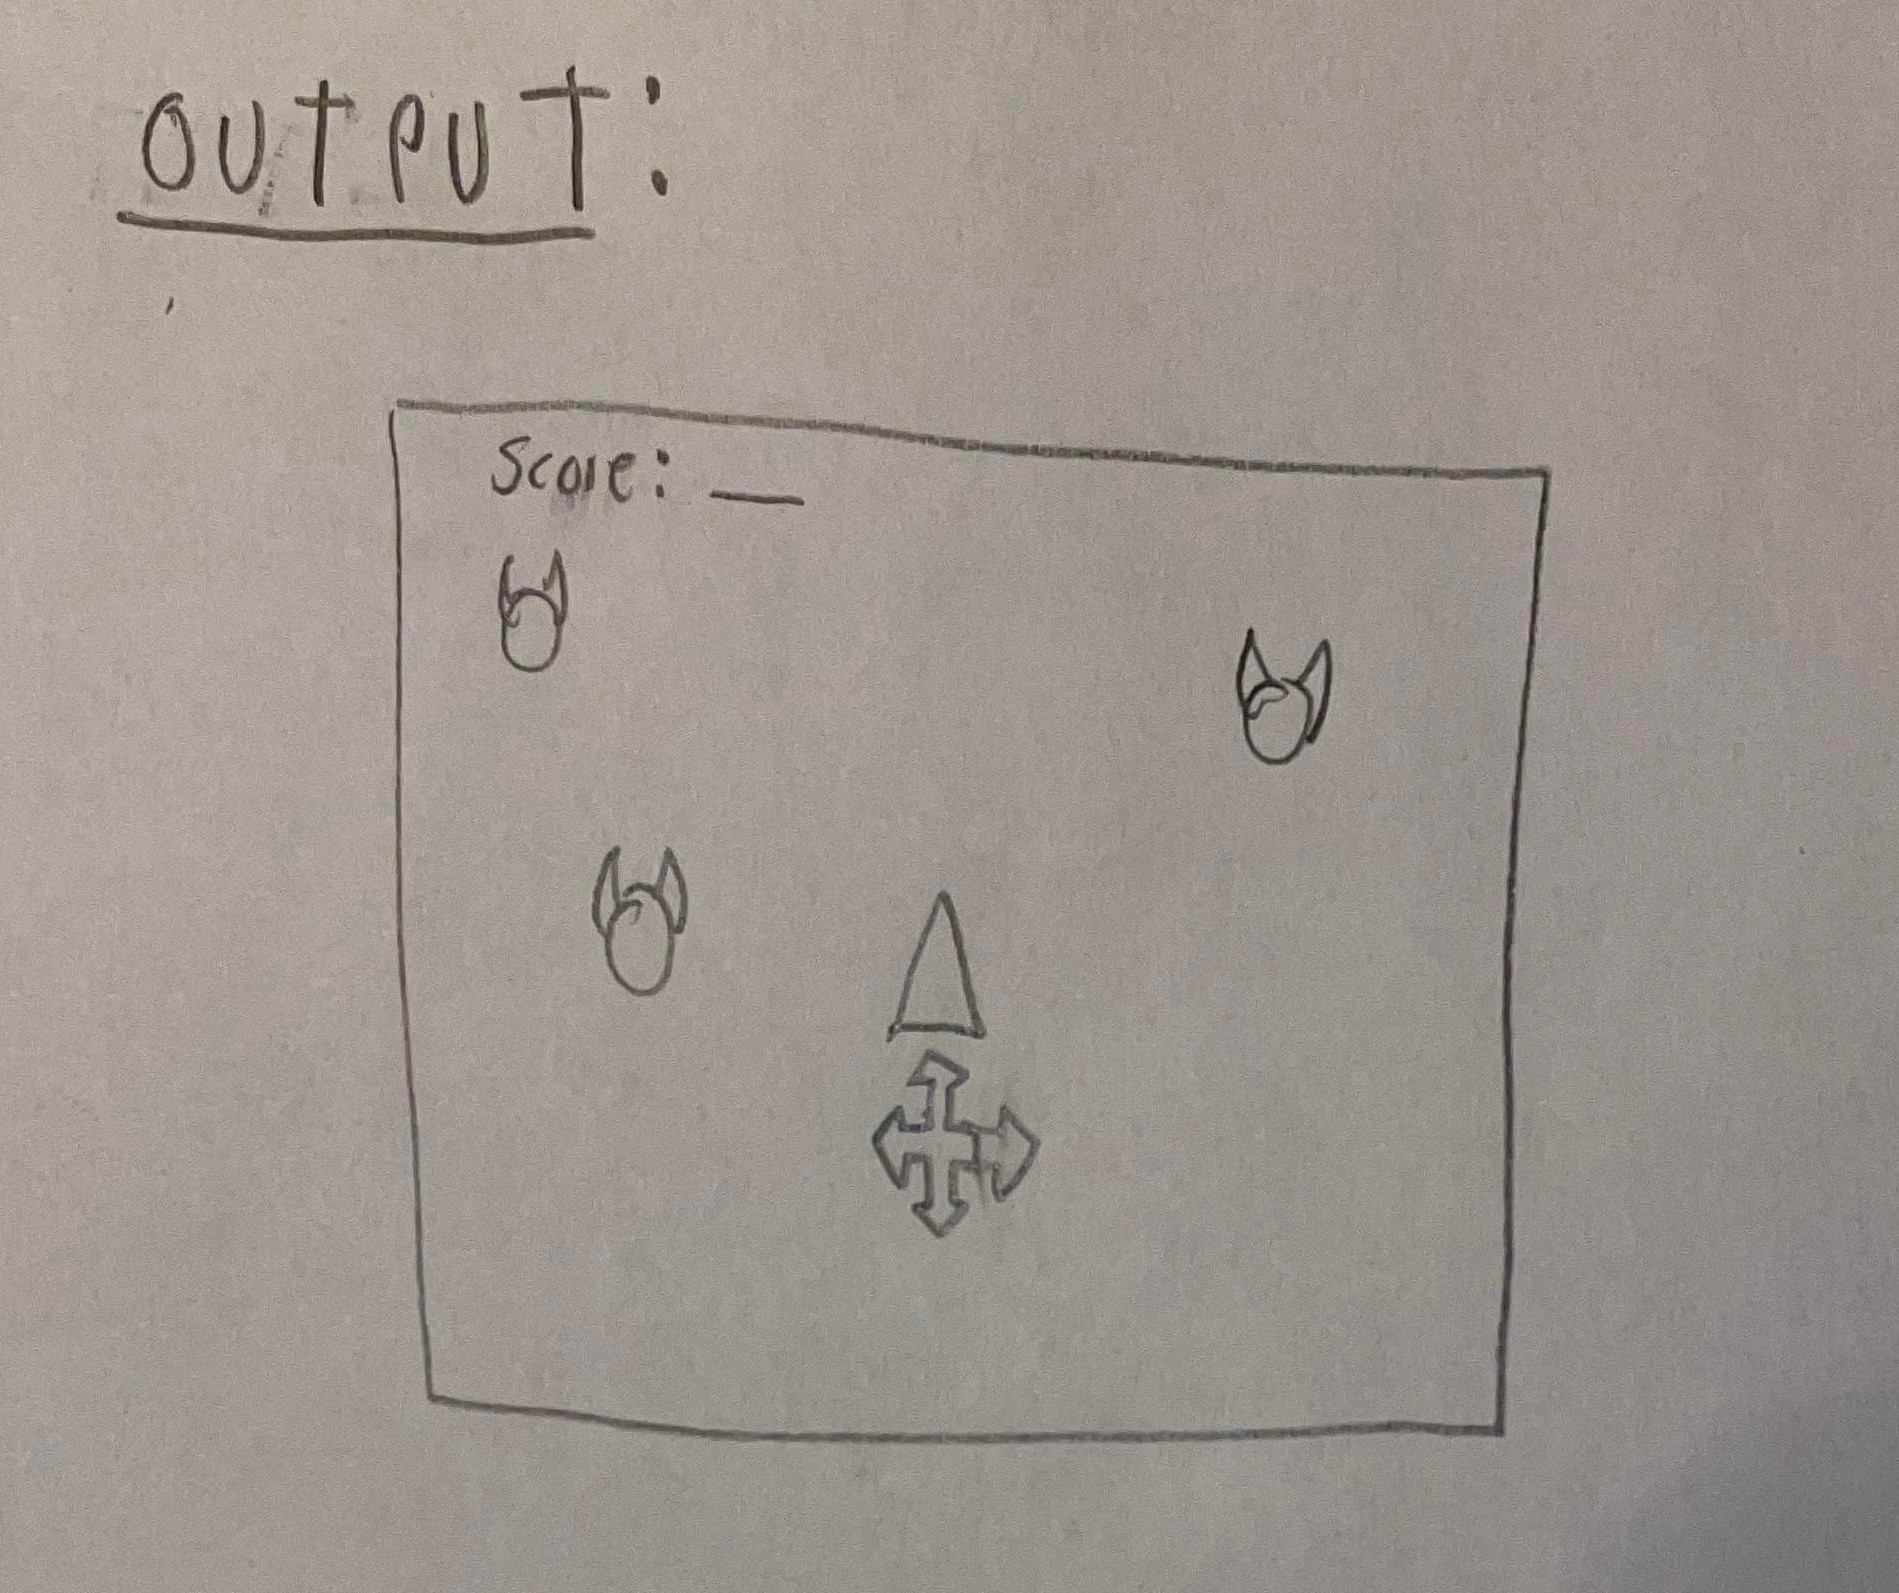 OUTPUT:
Score: __